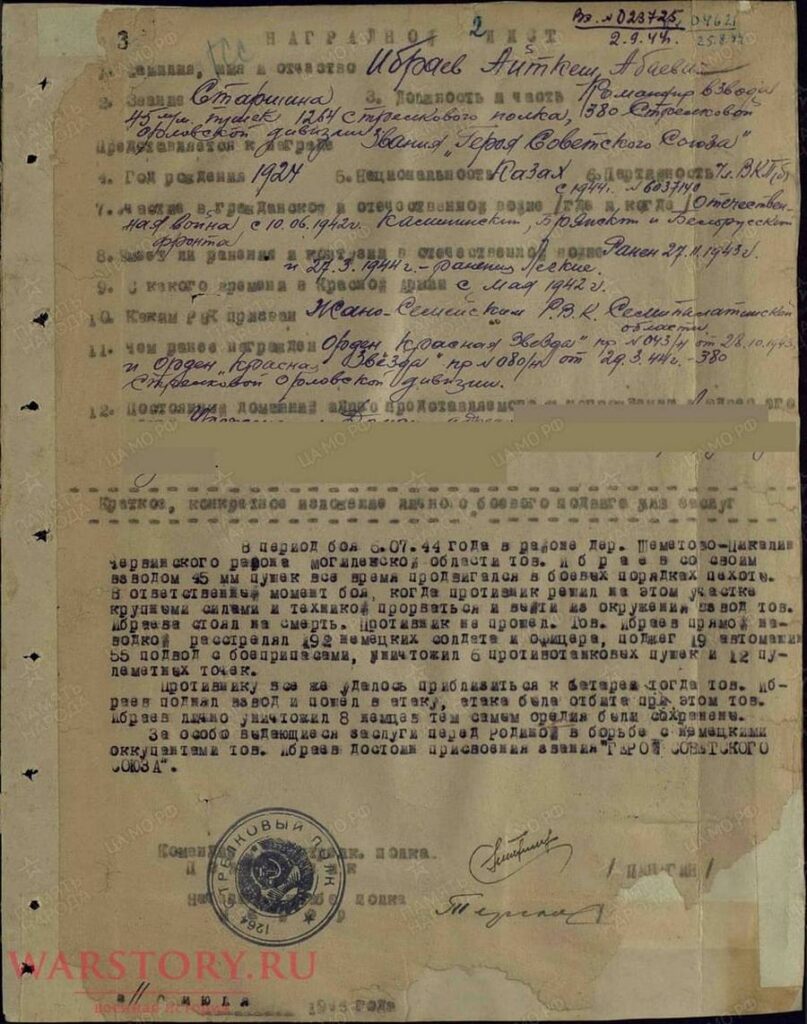 Вх. № 023725 04621
3 2 2.9.44г. 25.8.
НАГРАДНОЙ ЛИСТ
1. Фамилия, имя и отчество Ибраев Айткеш Абаевич
2. Звание Старшина 3. Должность и часть Командир взвода
45 м/м. пушек 1264 стрелкового полка, 380 Стрелковой
Орловской дивизии
Представляется к награде Звания „Героя Советского Союза"
4. Год рождения 1924 5. Национальность Казах 6. Партийность Чл. ВКП(б)
с 1944г. № 6037140
7. Участие в гражданской и отечественной войне /где и когда/ Отечествен-
ная война, с 10.06.1942г. Калининский, Брянский и Белорусский
фронта
8. Имеет ли ранения и контузии в отечественной войне Ранен 27.11.1943г.
и 27.3.1944г. - ранения легкие.
9. С какого времени в Красной Армии с Мая 1942г.
10. Каким РВК призван Жано-Семейским Р.В.К. Семипалатинской
области
11. Чем ранее награжден Орден Красная Звезда" пр № 043/н от 28.10.1943
и орден „Красная Звезда" пр № 080/н от 29.3.44г. - 380
Стрелковой Орловской дивизии.
12. Постоянный домашний адрес представляемого
Краткое, конкретное изложение личного боевого подвига или заслуг
В период боя 6.07.44 года в районе дер. Шеметово-Пикалин
червинского района могилевской области тов. Ибраев со своим
взводом 45 мм пушек все время продвигался в боевых порядках пехоты.
В ответственный момент боя, когда противник решил на этом участке
крупными силами и техникой прорваться и выйти из окружения взвод тов.
Ибраева стоял на смерть. Противник не прошел. Тов. Ибраев прямой на-
водкой расстрелял 192 немецких солдата и офицера, поджег 19 автомашин
55 подвод с боеприпасами, уничтожил 6 противотанковых пушек и 12 пу-
леметных точек.
Противнику все же удалось приблизиться к батареи тогда тов. Иб-
раев поднял взвод и пошел в атаку, атака была отбита при этом тов.
Ибраев лично уничтожил 8 немцев тем самым орудия были сохранены.
За особо выдающиеся заслуги перед родиной в борьбе с немецкими
оккупантами тов. Ибраев достоин присвоения звания "ГЕРОЙ СОВЕТСКОГО
СОЮЗА".
СТРЕЛКОВЫЙ ПОЛК
1264
Командир полка.
полка
WARSTORY.RU
военная история
" 11 " июля 194 года
ЦАМО.РФ